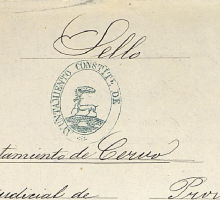 Sello
AYUNTAMIENTO CONSTITL. DE
tamiento de Cervo
udicial de Prov